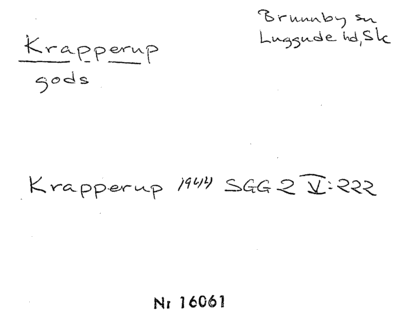 Krapperup
gods
Brunnby sn
Luggude hd, Sk
Krapperup 1944 SGG 2 V:222
Nr 16061